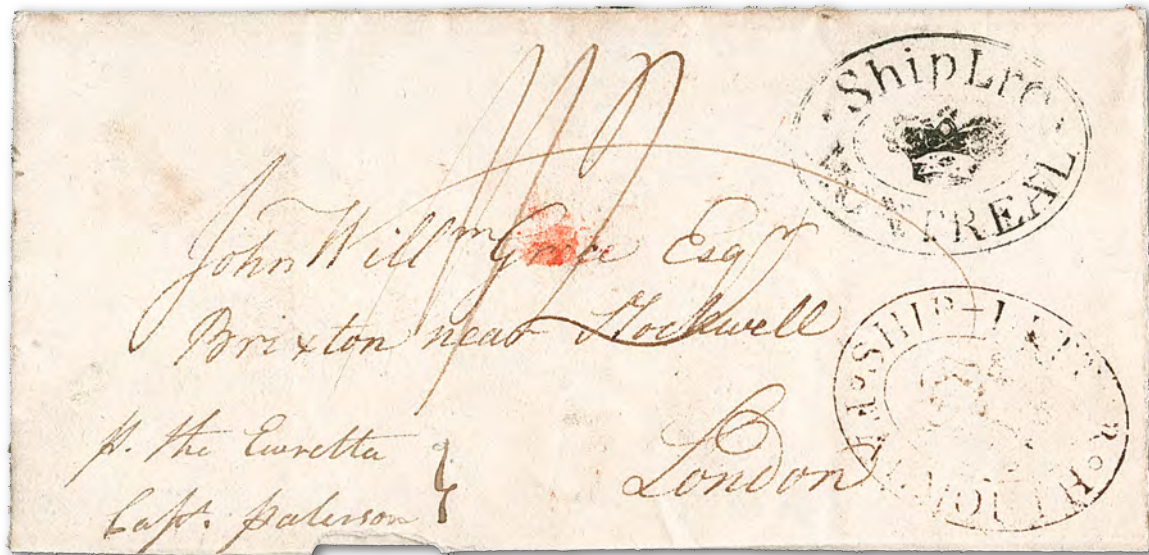 Ship Lre
MONTREAL
John Willm Esqr
Brixton near Stockwell
London
SHIP-LETTER
p. the Ewretta
Capt. Paterson